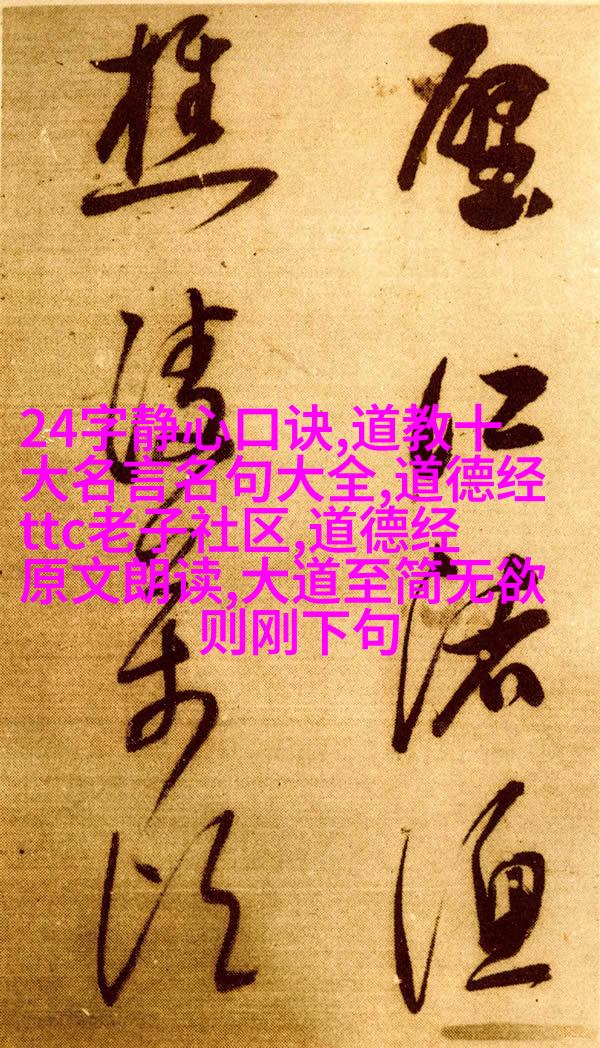 24字静心口诀,道教十
大名言名句大全,道德经
ttc老子社区,道德经
原文朗读,大道至简无欲
则刚下句
江渚漁
樵